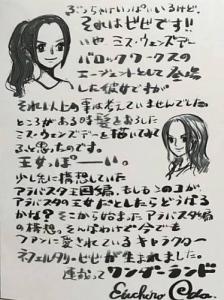 ぶっちゃけいっぱいいるけど、
それはビビです!!
いや ミス・ウェンズデー
バロックワークスの
エージェントとして登場
した彼女ですが
それ以上の事は考えていませんでした。
ところがある時髪をおろした
ミス・ウェンズデーを描いてみて
ふと思ったのです。
王女っぽーい。
少し先に構想していた
アラバスタ王国編、もしもこのコが、
アラバスタの王女だとしたらどうなる
かな?そこから始まったアラバスタ編
の構想。そんなわけで今でも
ファンに愛されているキャラクター
ネフェルタリ・ビビが生まれました。
連載って ワンダーランド
Eiichiro Oda.